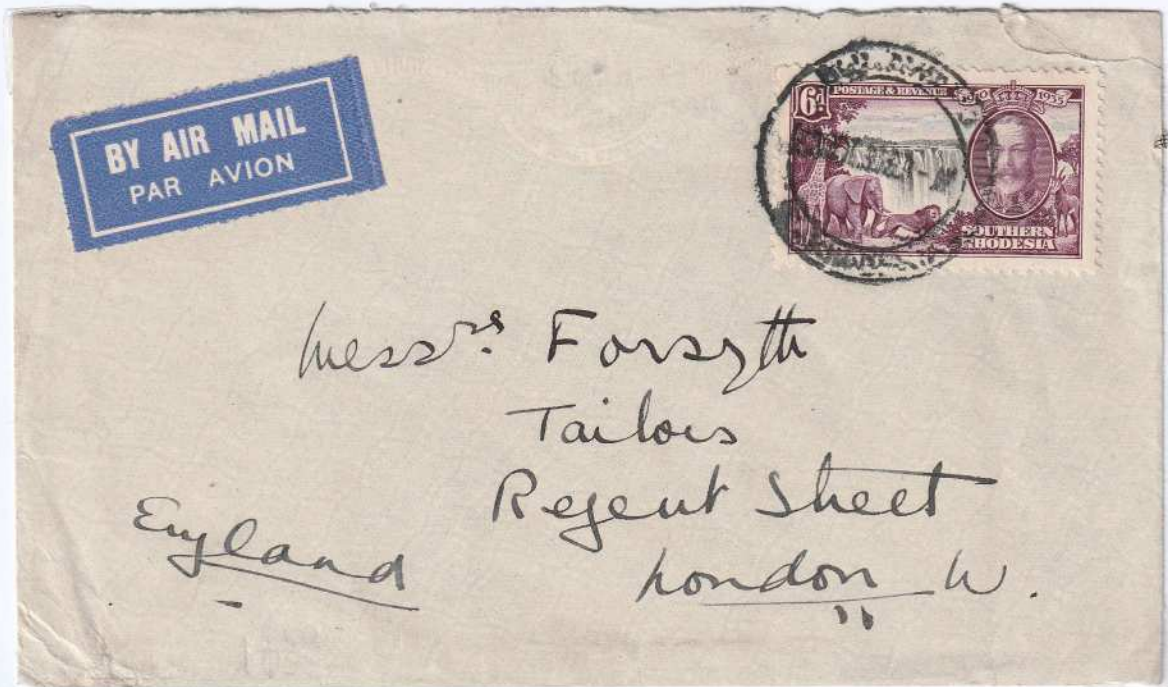 BY AIR MAIL
PAR AVION
6d. POSTAGE & REVENUE 1910 1935
SOUTHERN
RHODESIA
Messrs. Forsyth
Tailors
Regent Street
London W.
England